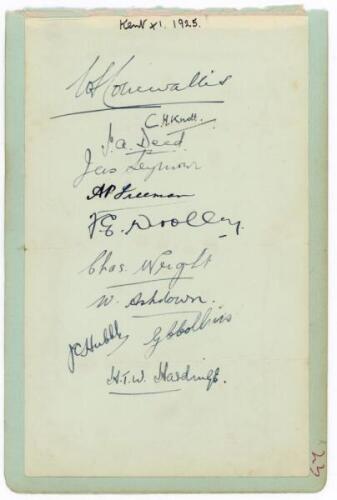 Kent XI. 1925.
W S Cornwallis
C.H. Knott.
J. A. Deed
Jas Seymour
A P Freeman
F. E. Woolley.
Chas. Wright
W. Ashdown.
J C Hubble G C Collins
H. T. W. Hardinge.